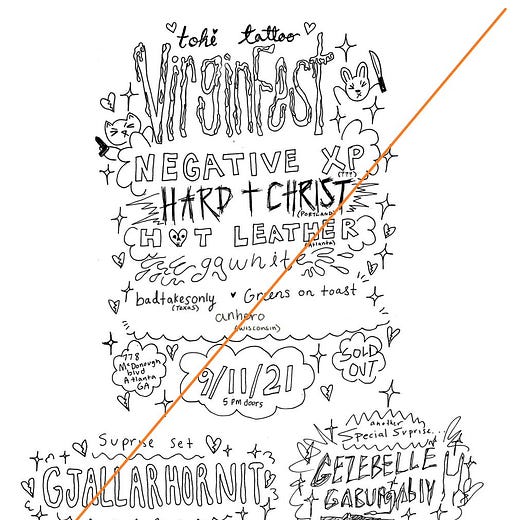 tohi tattoo
VirginFest
NEGATIVE XP
(???)
HARD + CHRIST
(PORTLAND)
HOT LEATHER
(Atlanta)
Eggwhite
badtakesonly ♥ Greens on toast
(TEXAS)
anhero
(wisconsin)
778
McDonough
blvd
Atlanta
GA
9/11/21
5 PM doors
SOLD
OUT
Suprise set
GJALLARHORNIT
another
Special Suprise...
GEZEBELLE
GABURGABLY